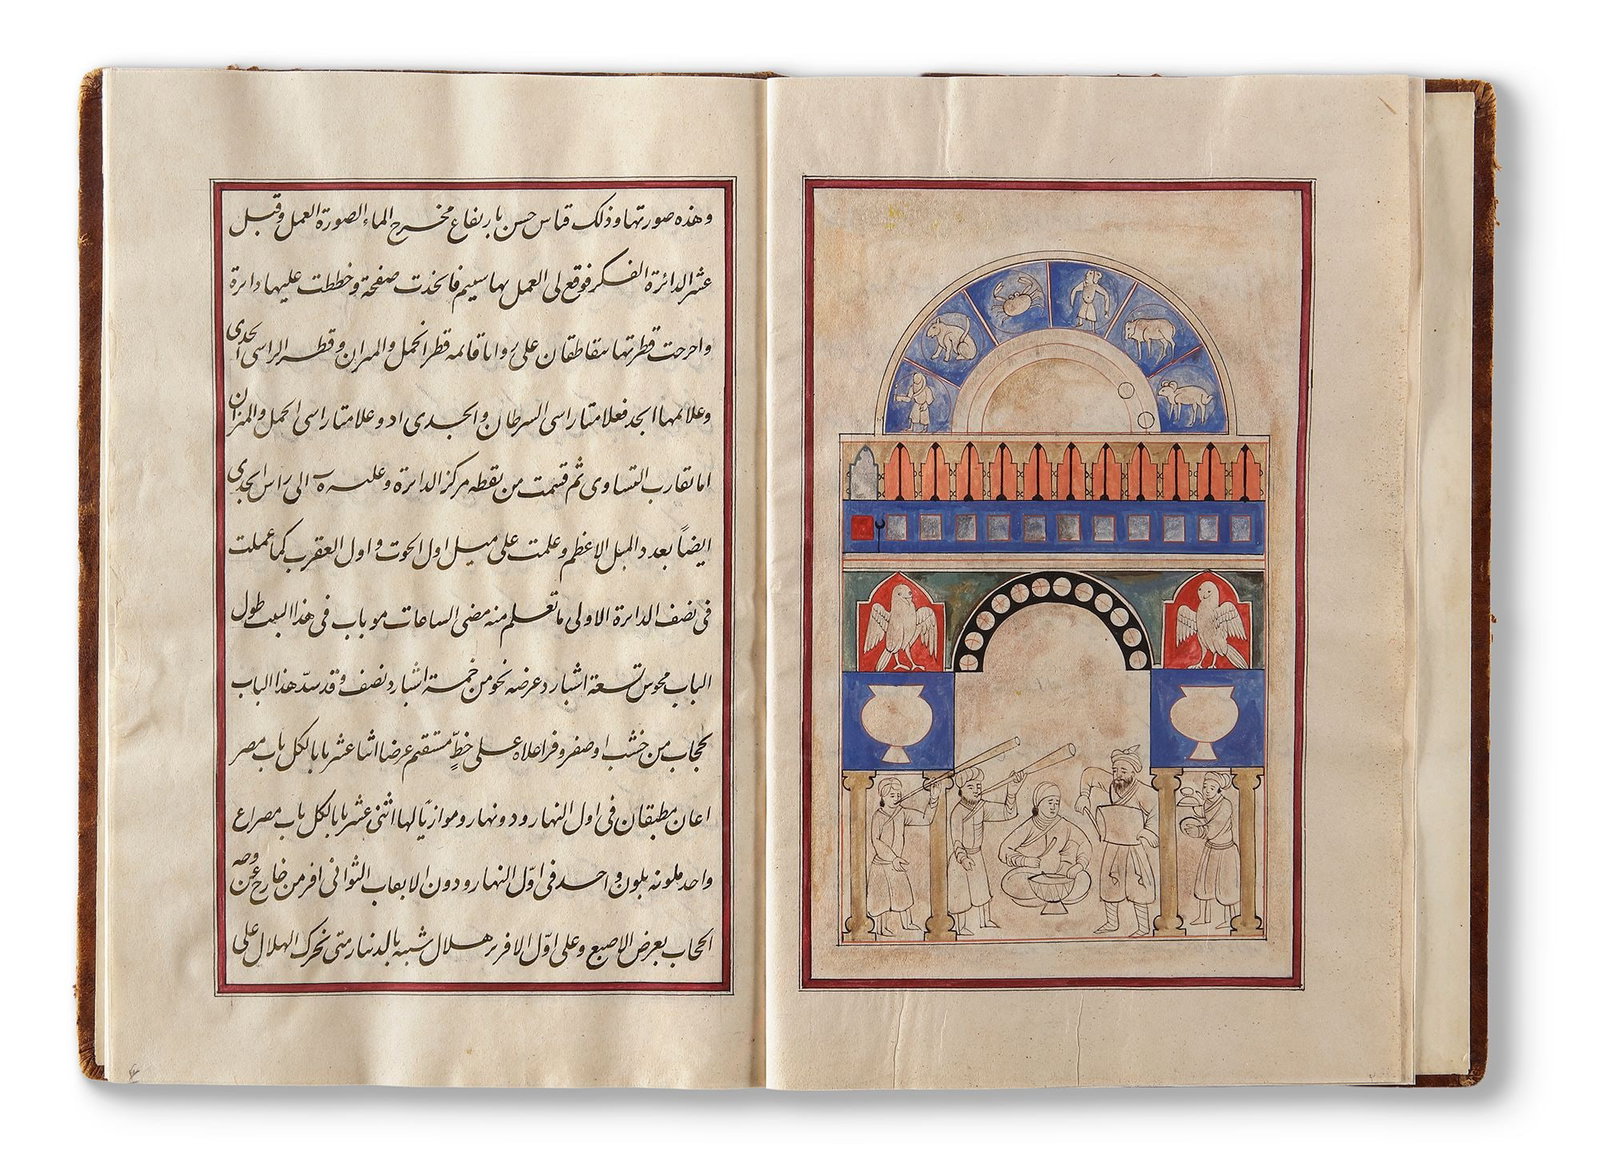 وهذه صورتها وذلك قياس حسن بارتفاع مخرج الماء الصورة العمل وقبل
عشر الدائرة الفكر فوقع لى العمل بها سيتم فاتخذت صفحة وخططت عليها دائرة
واخرجت قطرتها يتقاطعان على زوايا قائمه قطر الحمل والميزان وقطر الراسى الجدى
وعلامها ابجد فعلامتا راسى السرطان والجدى اد وعلامتا راسى الحمل والميزان
اما تقارب التساوى ثم قسمت من نقطه مركز الدائرة وعليه ب الى راس الجدى
ايضاً بعدد الميل الاعظم وعلمت على ميل اول الحوت واول العقرب كما عملت
فى نصف الدائرة الاولى ما تعلم منه مضى الساعات مو باب فى هذا البيت طول
الباب نحو من تسعة اشبار وعرضه نحو من خمسة اشبار ونصف وقد سدّ هذا الباب
بحجاب من خشب او صفر وفر اعلاه على خطٍّ مستقيم عرضا اثنا عشر بابا لكل باب مصر
اعان مطبقان فى اول النهار ودونها وموازيًا لها اثنى عشر بابا لكل باب مصراع
واحد ملونه بلون واحد فى اوّل النهار ودون الابواب الثوانى افريز من خارج عن وجه
الحجاب بعرض الاصبع وعلى اوّل الافريز هلال شبيه بالدينار متى تحرك الهلال على